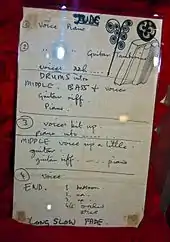 JUDE
① Voice Piano
② " " Guitar Tambourine
voices aah ....
DRUMS intro
MIDDLE. BASS + voices
Guitar riff
Piano.
③ voices hit up.
Piano into ......
MIDDLE voice up a little.
guitar
guitar riff. ---- piano
④ Voice
END.
1.
2.
3.
4/5
LONG SLOW FADE.